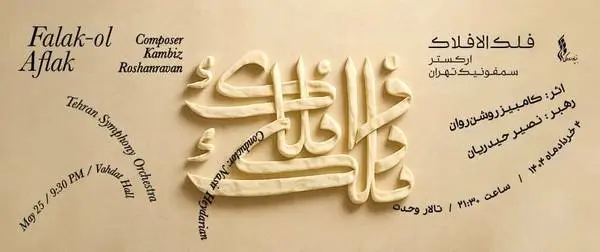 Falak-ol
Aflak
Composer
Kambiz
Roshanravan
Tehran Symphony Orchestra
May 25 / 9:30 PM / Vahdat Hall
Conductor: Nasir Heydarian
فلک الافلاک
فلک الافلاک
ارکستر
سمفونیک تهران
اثر: کامبیز روشن‌روان
رهبر: نصیر حیدریان
۴ خردادماه ۱۴۰۴ / ساعت ۲۱:۳۰ / تالار وحدت